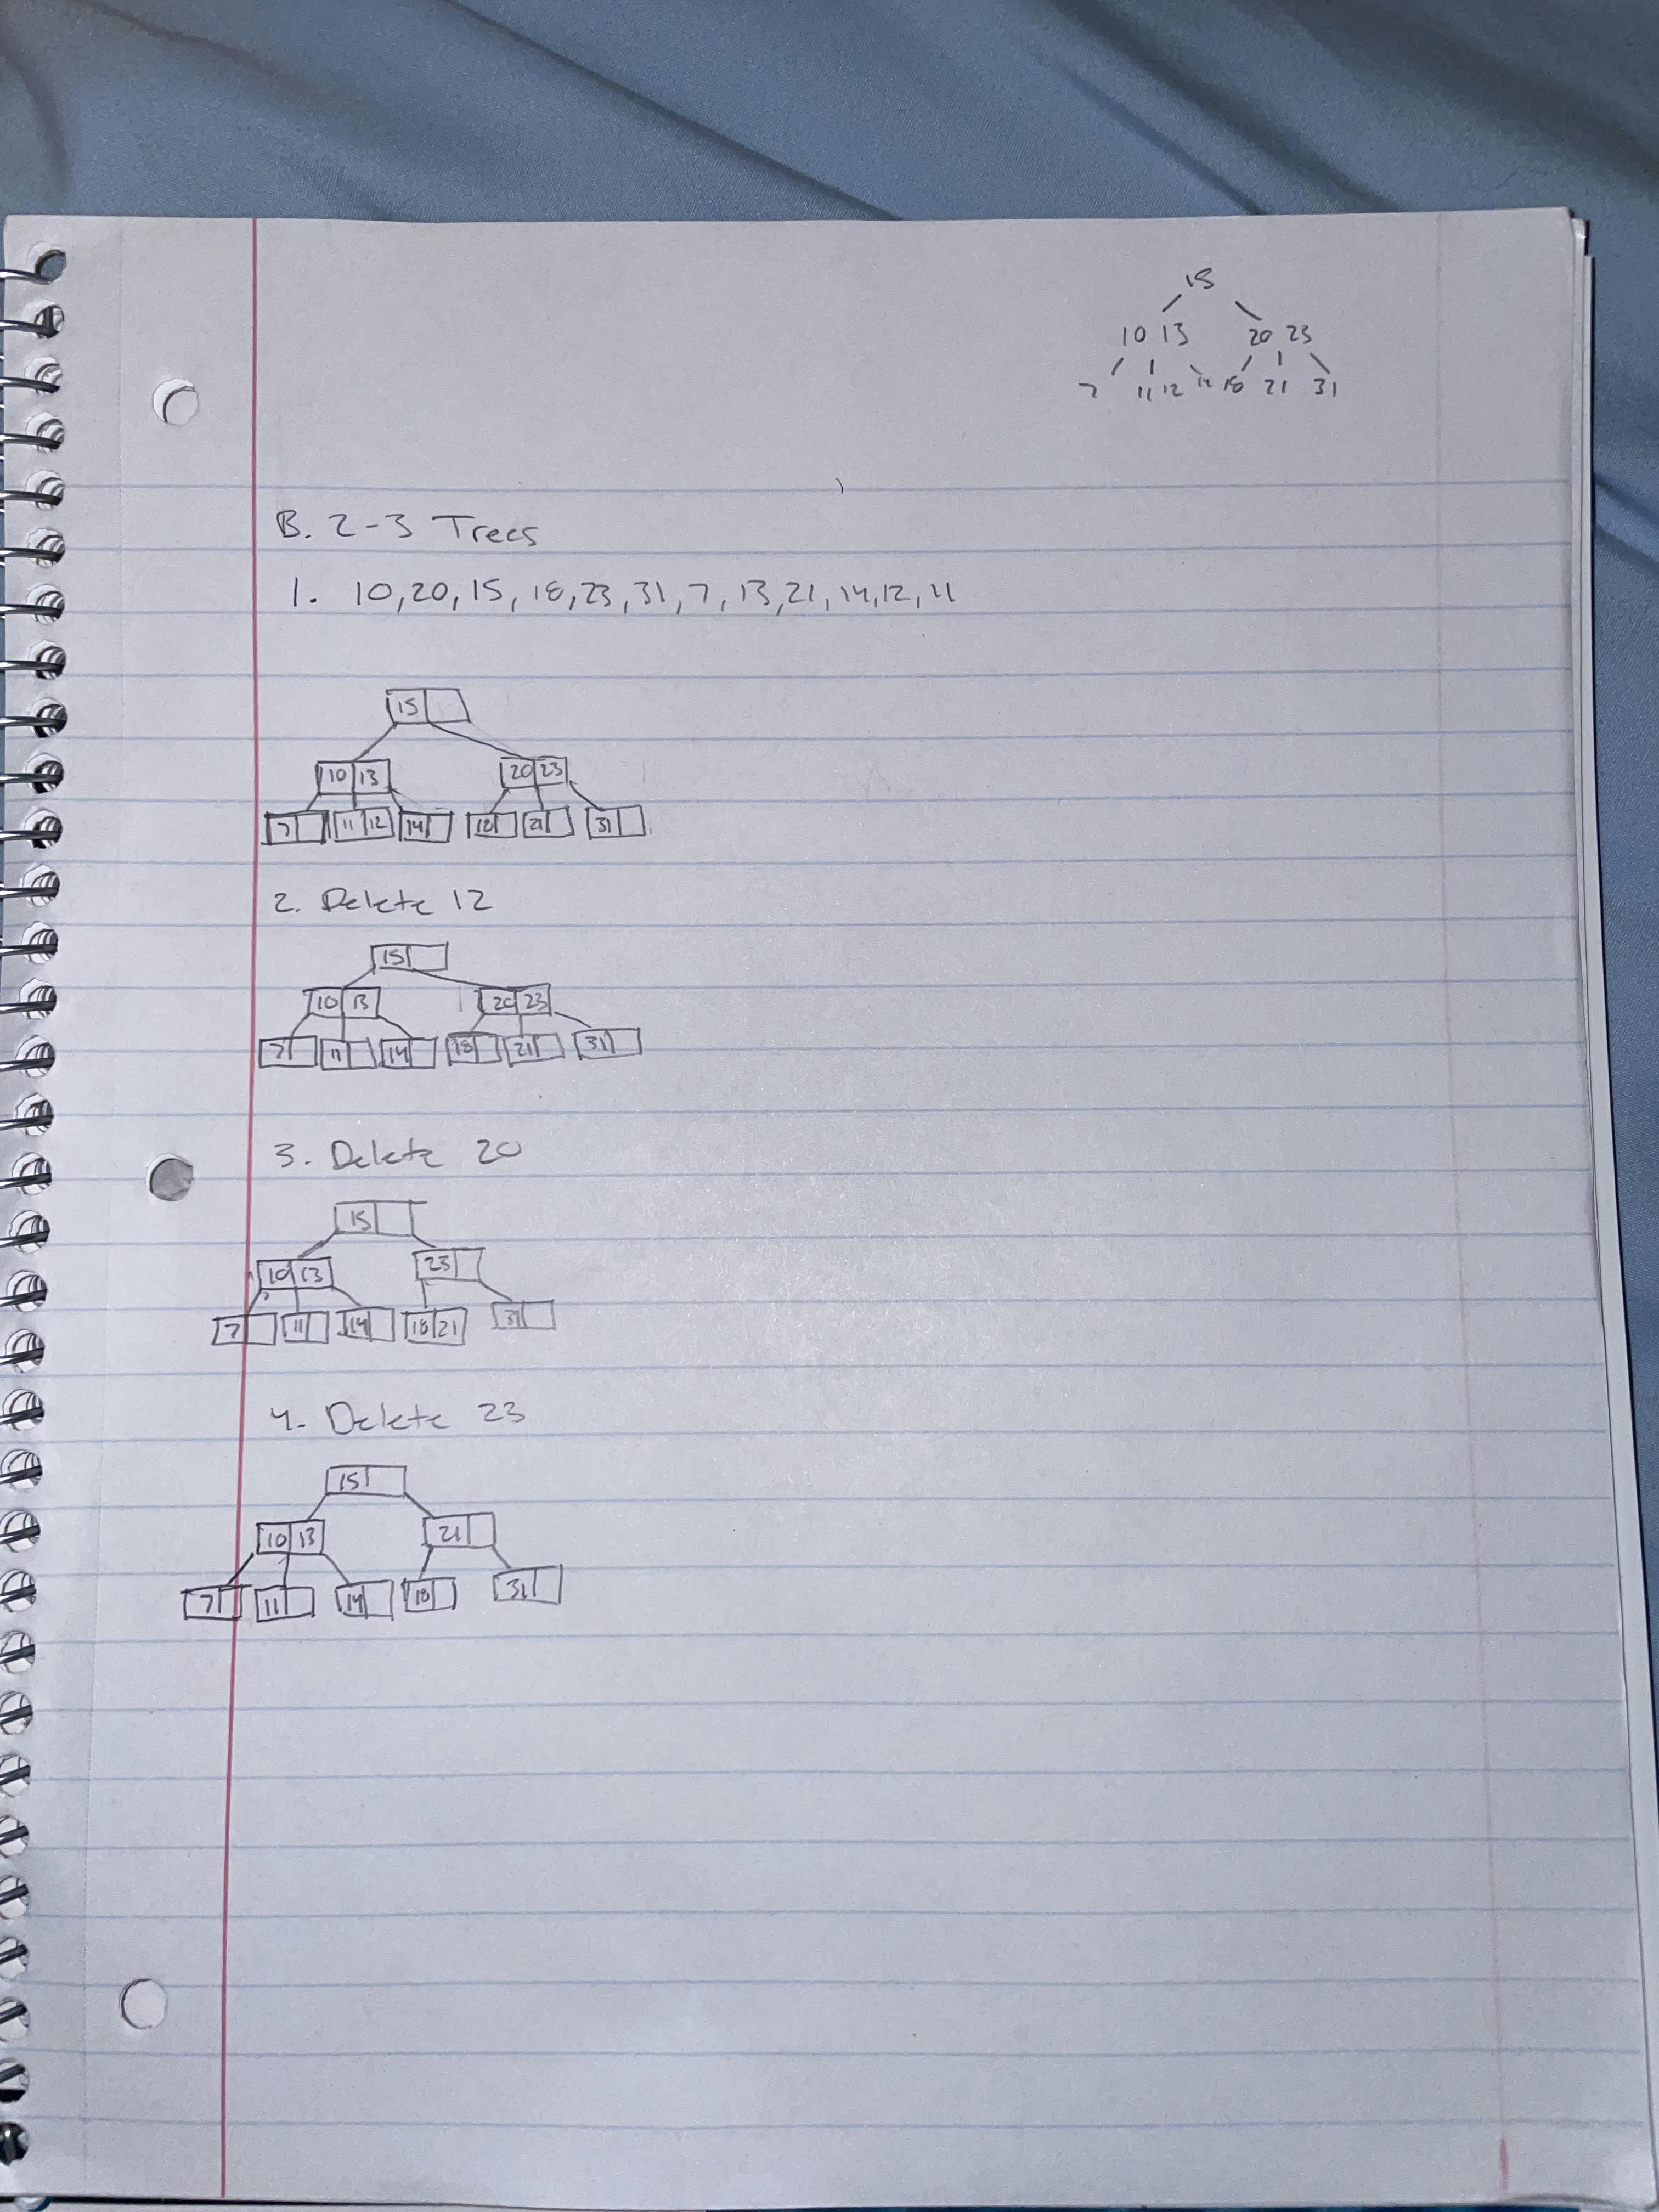 15
10 13 20 23
7 11 12 14 18 21 31
B. 2-3 Trees
1. 10, 20, 15, 18, 23, 31, 7, 13, 21, 14, 12, 11
15
10 13 20 23
7 11 12 14 18 21 31
2. Delete 12
15
10 13 20 23
7 11 14 18 21 31
3. Delete 20
15
10 13 23
7 11 14 18 21 31
4. Delete 23
15
10 13 21
7 11 14 18 31